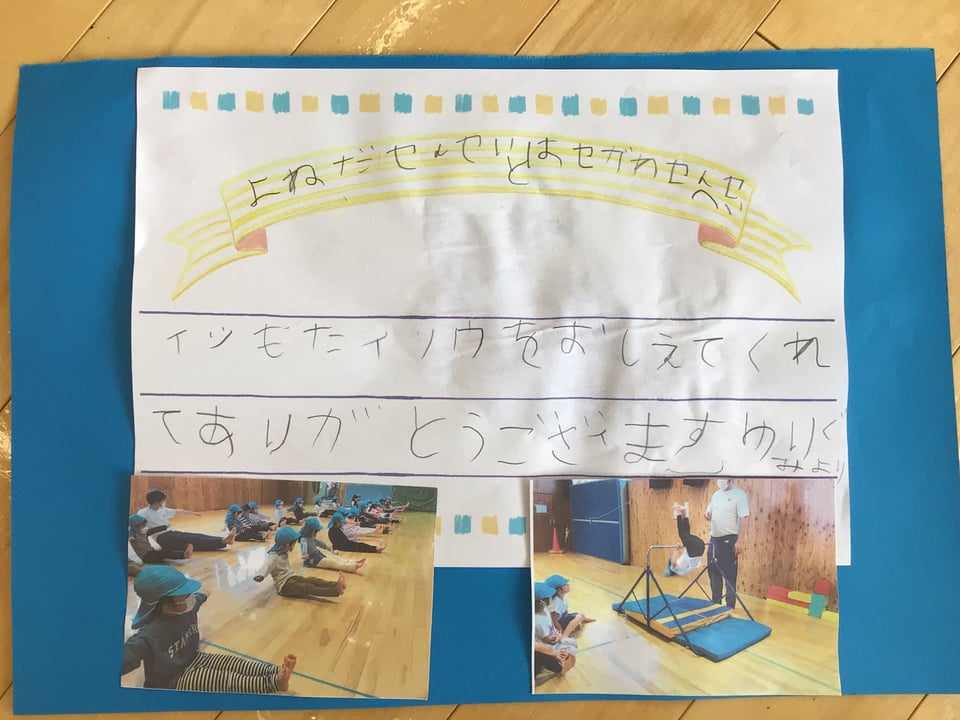 よねだセんセいとはセがわセんセいへ
イツもたイソウをおしえてくれ
てありガとうござイますゆりぐ
みより